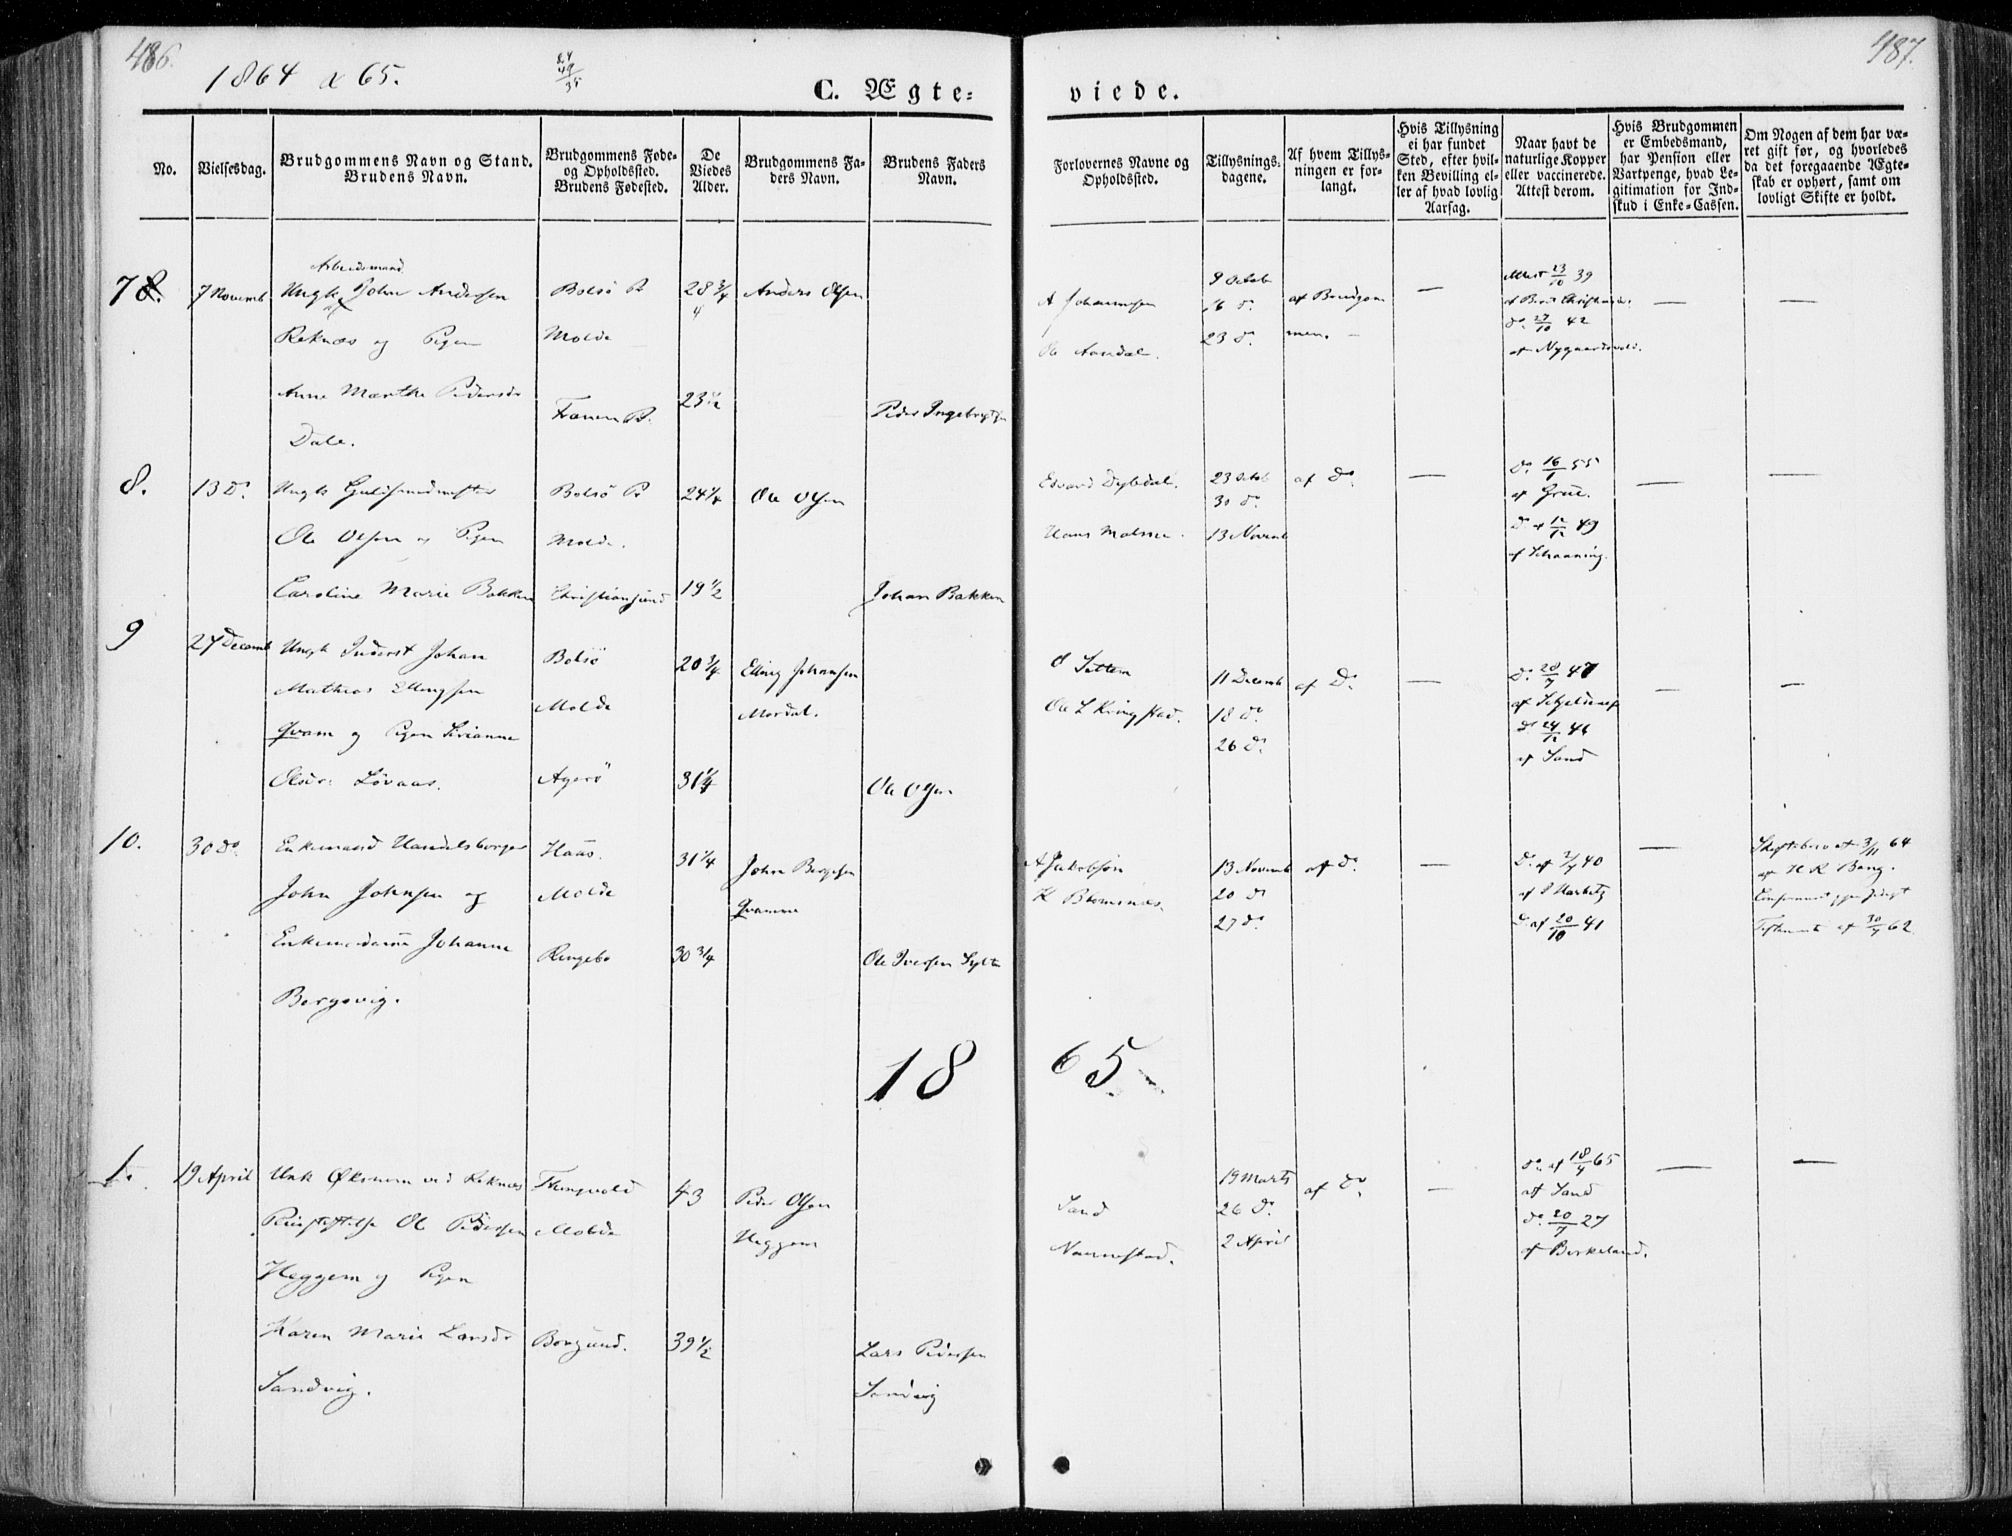 486.
487.
1864 & 65.
64
49
35
C. Ægte=
viede.
No.
Vielsesdag.
Brudgommens Navn og Stand.
Brudens Navn.
Brudgommens Føde-
og Opholdssted.
Brudens Fødested.
De
Viedes
Alder.
Brudgommens Fa-
ders Navn.
Brudens Faders
Navn.
Forlovernes Navne og
Opholdssted.
Tillysnings-
dagene.
Af hvem Tillys-
ningen er for-
langt.
Hvis Tillysning
ei har fundet
Sted, efter hvil-
ken Bevilling el-
ler af hvad lovlig
Aarsag.
Naar havt de
naturlige Kopper
eller vaccinerede.
Attest derom.
Hvis Brudgommen
er Embedsmand,
har Pension eller
Vartpenge, hvad Le-
gitimation for Ind-
skud i Enke-Cassen.
Om Nogen af dem har væ-
ret gift før, og hvorledes
da det foregaaende Ægte-
skab er ophørt, samt om
lovligt Skifte er holdt.
7 8.
7 Novemb
Arbeidsmand
Ungk John Andersen
Reknæs og Pigen
Anne Marthe Pedersdr
Dale.
Bolsö P
Molde
Frænen P.
28 3/4
23 1/2
Anders Olsen
Peder Ingebrigtsen
A Johannesen
Ole Aandal.
9 Octob
16 do.
23 do.
af Brudgom
men. —
—
Attest 23/10 39
do. 27/10 42
af Nygaardsvold.
—
—
8.
13 do.
Ungk Guldsmedmester
Ole Olsen og Pigen
Caroline Marie Bakken
Bolsö P
Molde.
Christiansund
24 1/4
19 1/2
Ole Olsen
Johan Bakken
Edvard Dybdal.
Hans Molsen.
23 Octob
30 do.
13 Novemb
af Do.
—
Do. 16/1 55
af Grüe.
Do af 12/12 49
af Schaaning.
—
—
9
27 Decemb
Ungk Inderst Johan
Mathias Ellingsen
Qvam og Pigen Sivianne
Olsdr. Løvaas.
Bolsö
Molde
Agerö
20 3/4
31 1/4
Elling Johansen
Mordal.
Ole Olsen
O Sættem
Ole L Kringstad.
11 Decemb
18 do.
26 do.
af Do.
—
Do. 28/7 47
Do 24/12 41
af Sand
—
—
10.
30 do.
Enkemand Handelsborger
John Johnsen og
Enkemadame Johanne
Bergsvig.
Haus.
Molde
Ringebo
31 1/4
30 3/4
John Bergesen
Qvamme
Ole Iversen Sylte
A Jakobsön
K Blomsnæs
13 Novemb
20 do
27 do.
af do.
—
Do. af 2/9 40
Do af 20/10 41
—
Skiftebrev af 3/11 64
af H K Bang.
Testament af 30/9 62
1865
1.
19 April
Unk Økonom ved Reknæs
Pleiestiftelse Ole Pedersen
Heggem og Pigen
Karen Marie Larsdr
Sandvig.
Thingvold
Molde
Borgund.
43
39 1/2
Peder Olsen
Heggem
Lars Pedersen
Sandvig
Sand
Nannestad.
19 Marts
26 do.
2 April
af Do
—
Do. af 18/4 65
af Sand
do. 20/7 27
af Birkeland.
—
—